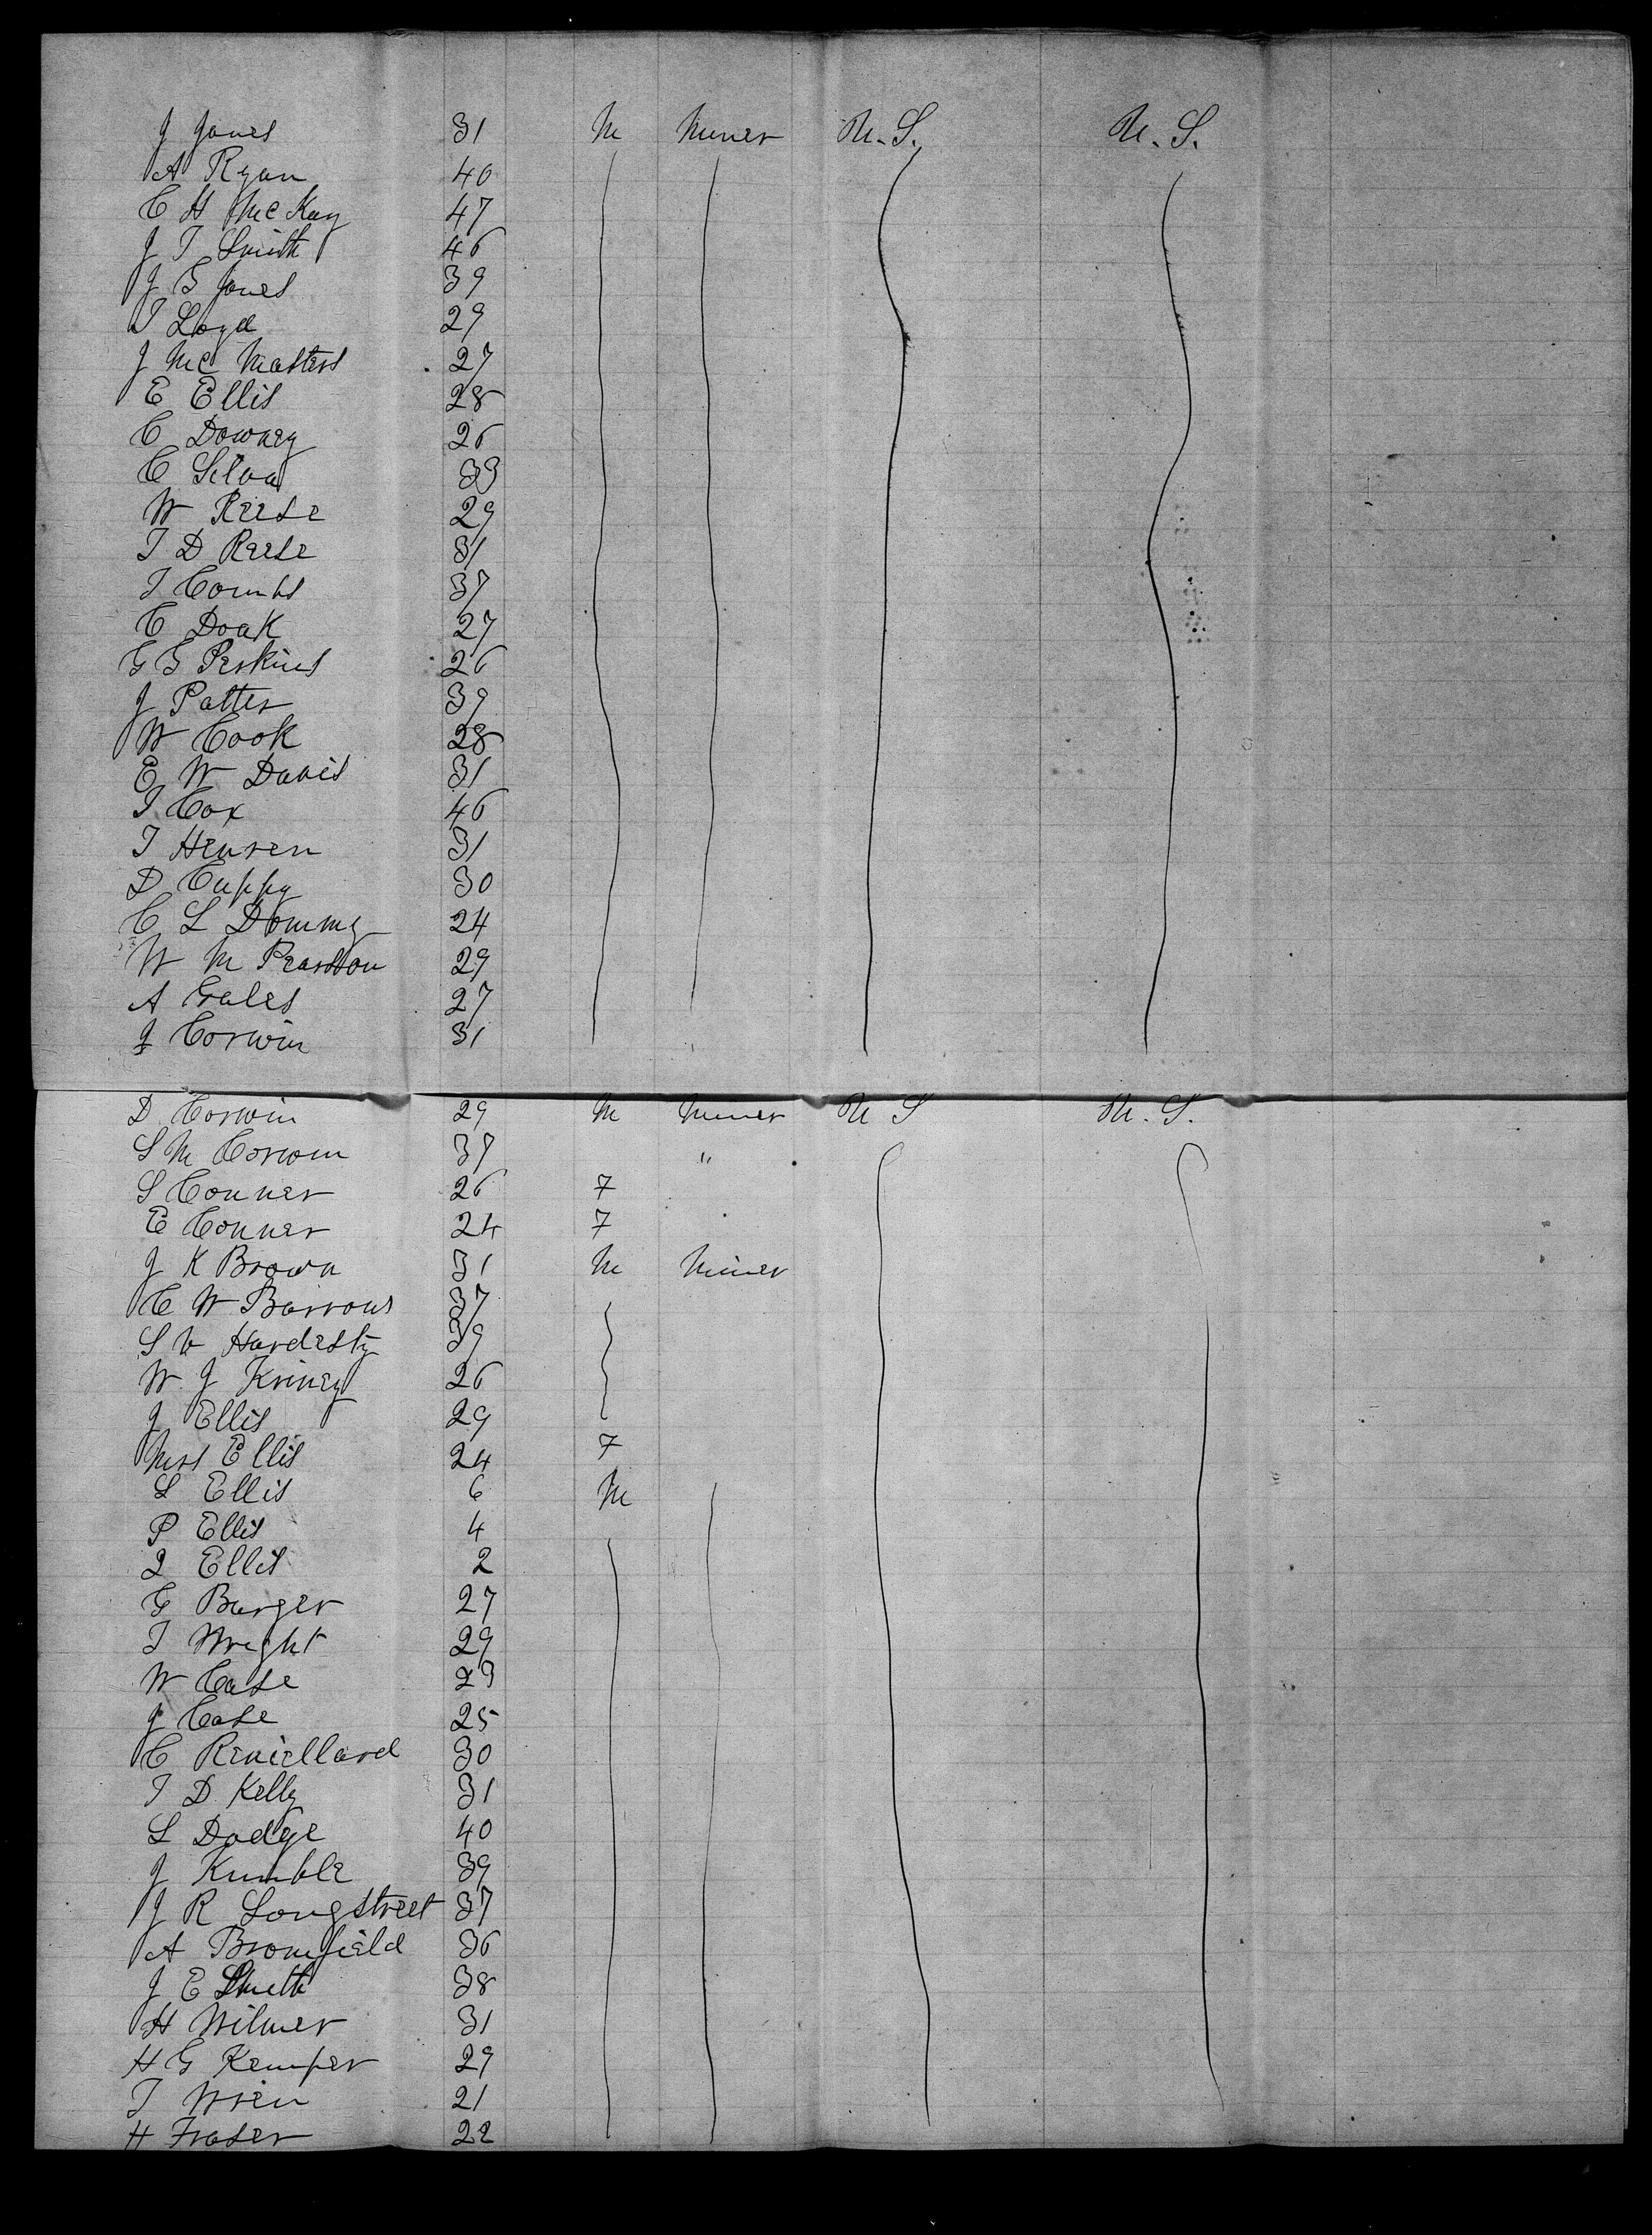 J Jones 31 M Miner U.S. U.S.
A Ryan 40
C H McKay 47
J T Smith 46
J S Jones 39
T Loyd 29
J McMasters 27
E Ellis 28
C Downey 26
C Silva 33
W Reese 29
T D Reese 31
T Combs 37
C Doak 27
G G Perkins 26
J Patter 39
W Cook 28
E W Davis 31
T Cox 46
T Hensen 31
D Cuppy 30
C L Dommy 24
W M Preaston 29
A Gales 27
J Corwin 31
D Corwin 29 M Miner U S U.S.
S M Corwin 37 "
S Conner 26 F
E Conner 24 F
J K Brown 31 M Miner
C W Barrows 37
S V Hardesty 39
W J Kriney 26
J Ellis 29
Mrs Ellis 24 F
L Ellis 6 M
P Ellis 4
Q Ellis 2
G Burger 27
T Wright 29
W Case 23
J Case 25
C Reviellard 30
T D Kelly 31
L Dodge 40
J Kumble 39
J R Longstreet 37
A Bromfield 36
J E Smith 38
H Wilmer 31
H G Kemper 29
T Wren 21
H Fraser 22